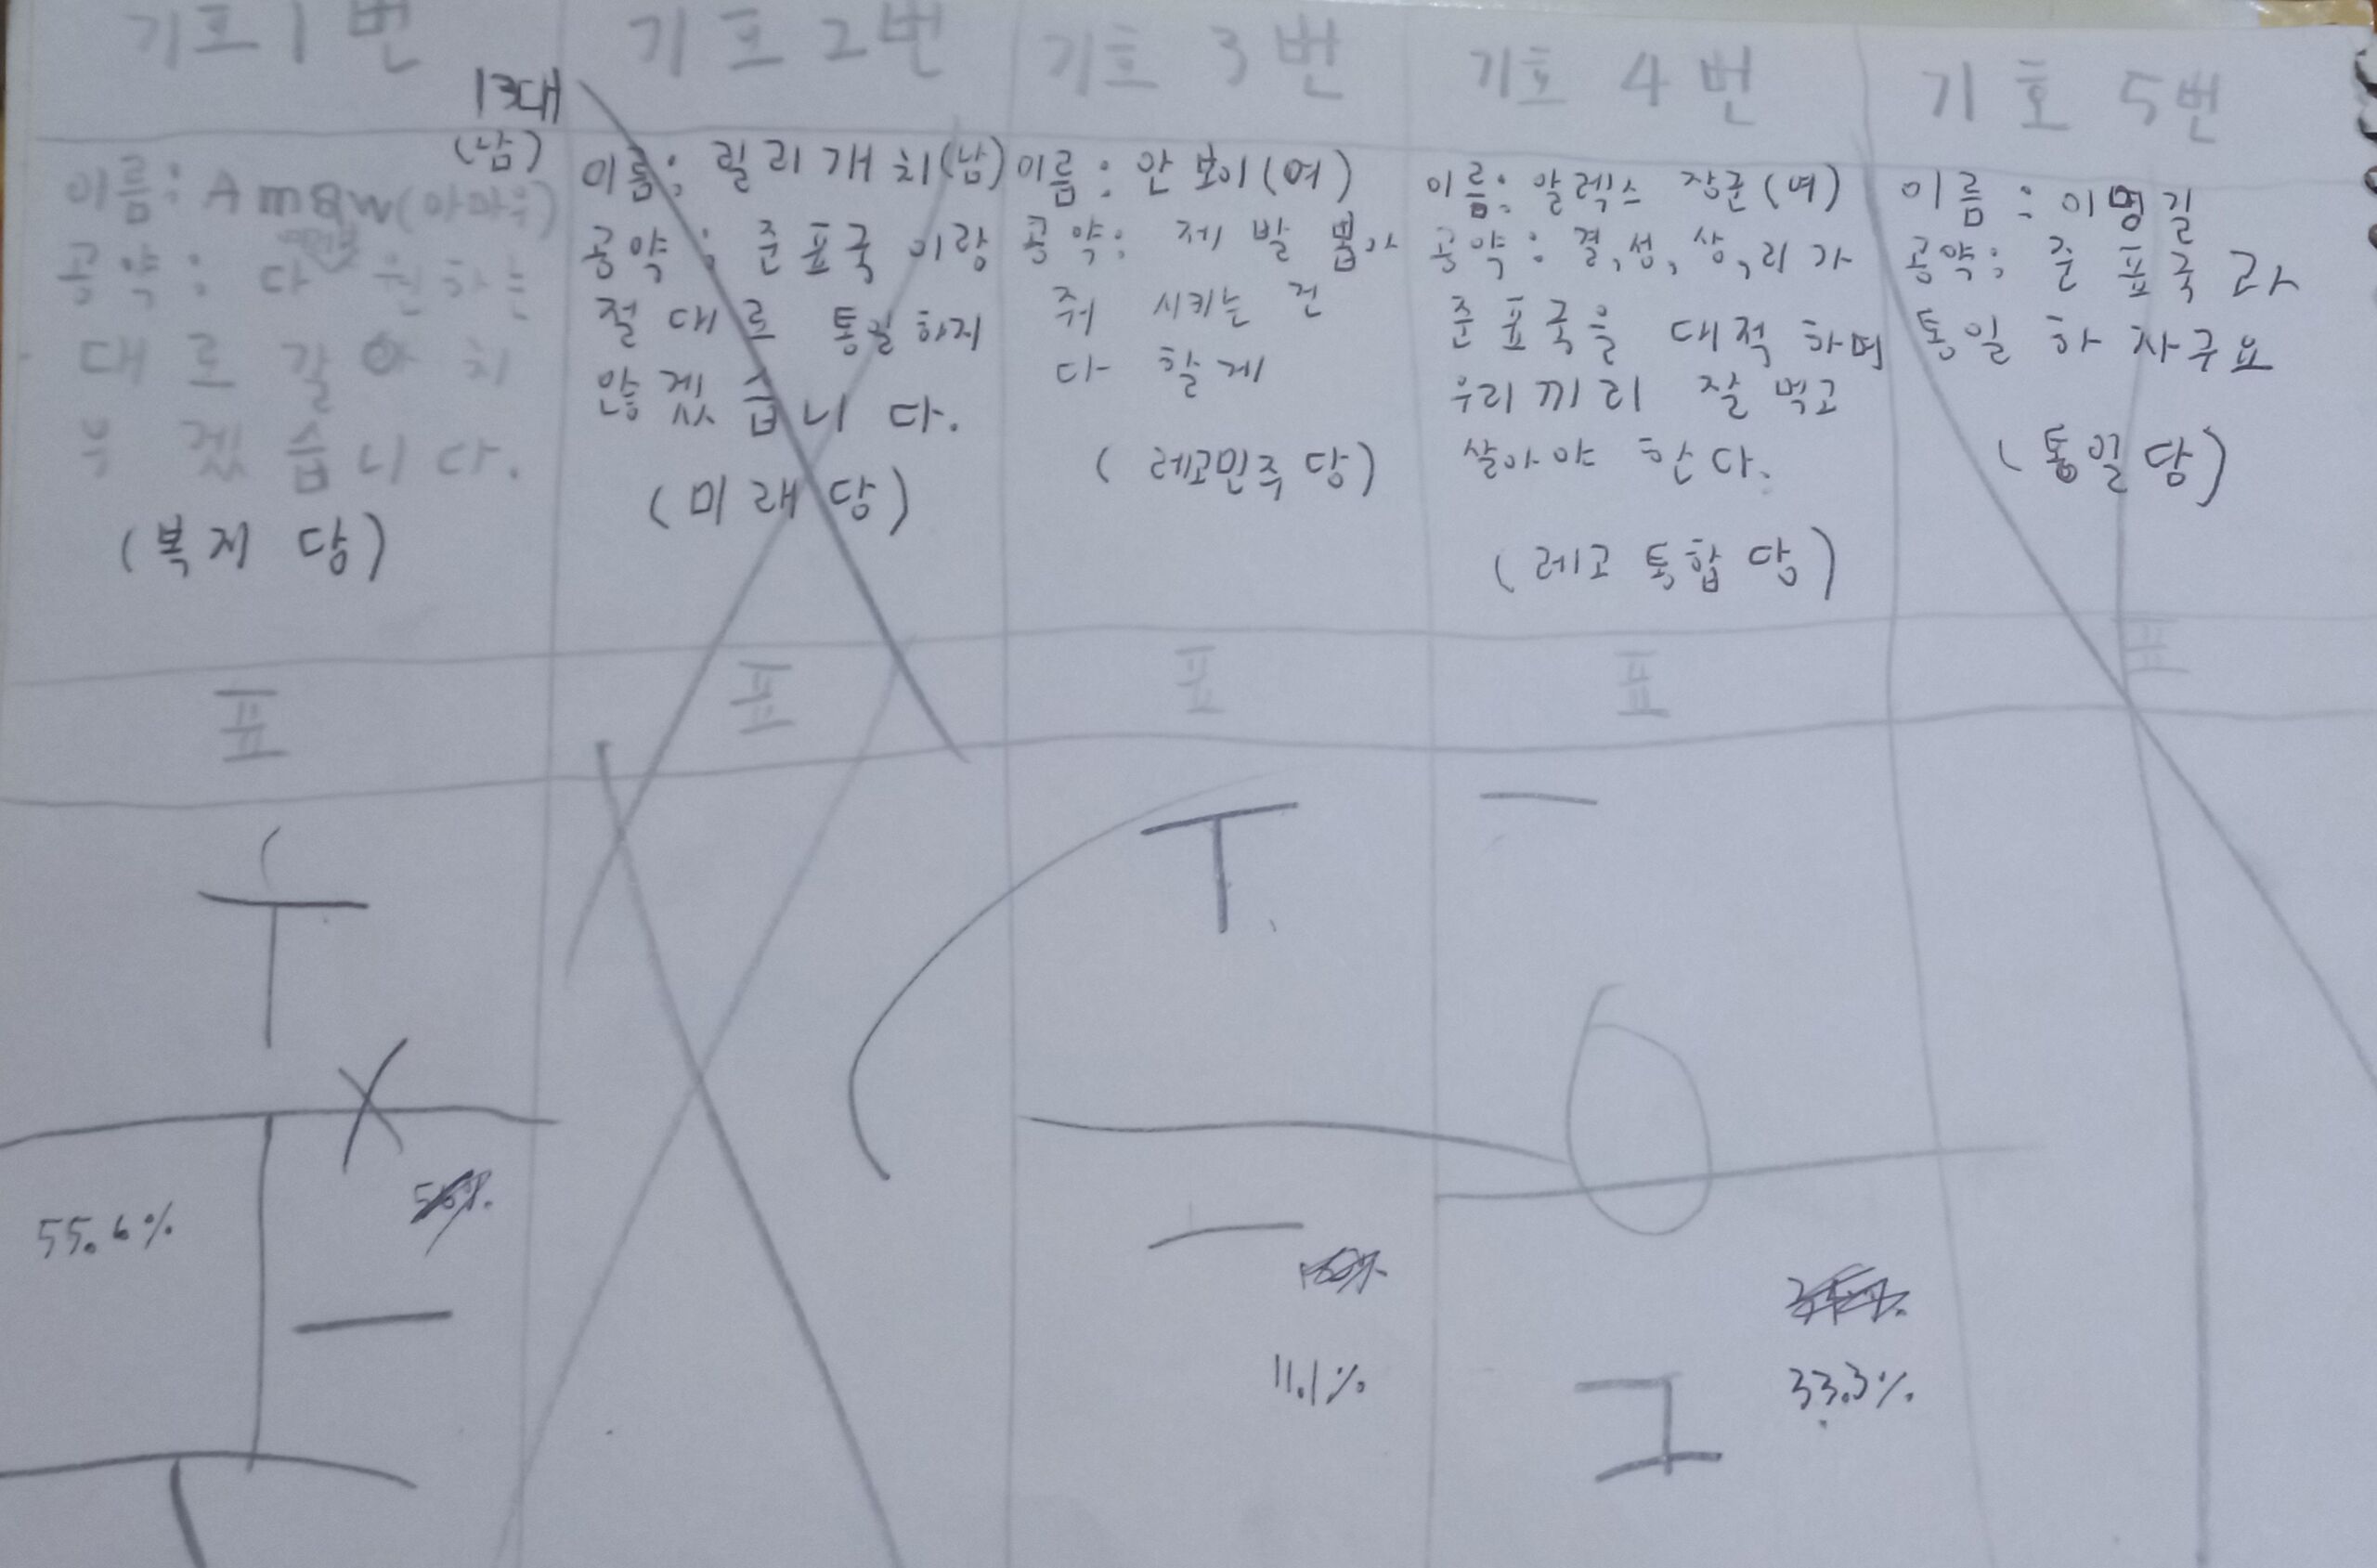 기호 1번
13대
(남)
이름: Amaw(아마우)
공약: 다 원하는
대로 갈아치
우겠습니다.
(복지당)
표
55.6%
기호 2번
이름: 릴리개치(남)
공약: 준표국이랑
절대로 통일하지
않겠습니다.
(미래당)
표
기호 3번
이름: 안뽀이(여)
공약: 제발 뽑아
줘 시키는 건
다 할게
(레고민주당)
표
11.1%
기호 4번
이름: 알렉스 장군(여)
공약: 결,성,상,리가
준표국을 대적하며
우리끼리 잘 먹고
살아야 한다.
(레고통합당)
표
33.3%
기호 5번
이름: 이명길
공약: 준표국과
통일하자구요
(통일당)
표